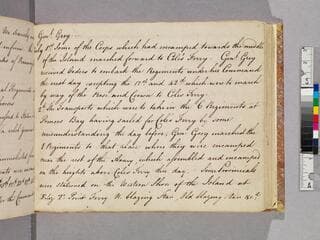 Genl. Grey
1st. Some of the Corps which had encamped towards the middle
of the Island marched forward to Coles Ferry. Genl. Grey
received Orders to embark the Regiments under his Command
the next day excepting the 17th. and 42d. which were to march
by way of the Rose and Crown to Coles Ferry.
2d. The Transports which were to take in the 6 Regiments at
Princes Bay having sailed for Coles Ferry by some
misunderstanding the day before, Genl. Grey marched the
Regiments to that place where they were encamped
near the rest of the Army which assembled and encamped
on the heights above Coles Ferry this day. Some Provincials
were stationed on the Western Shore of the Island at
Ferry Blazing Star, Old Blazing Star &ca.